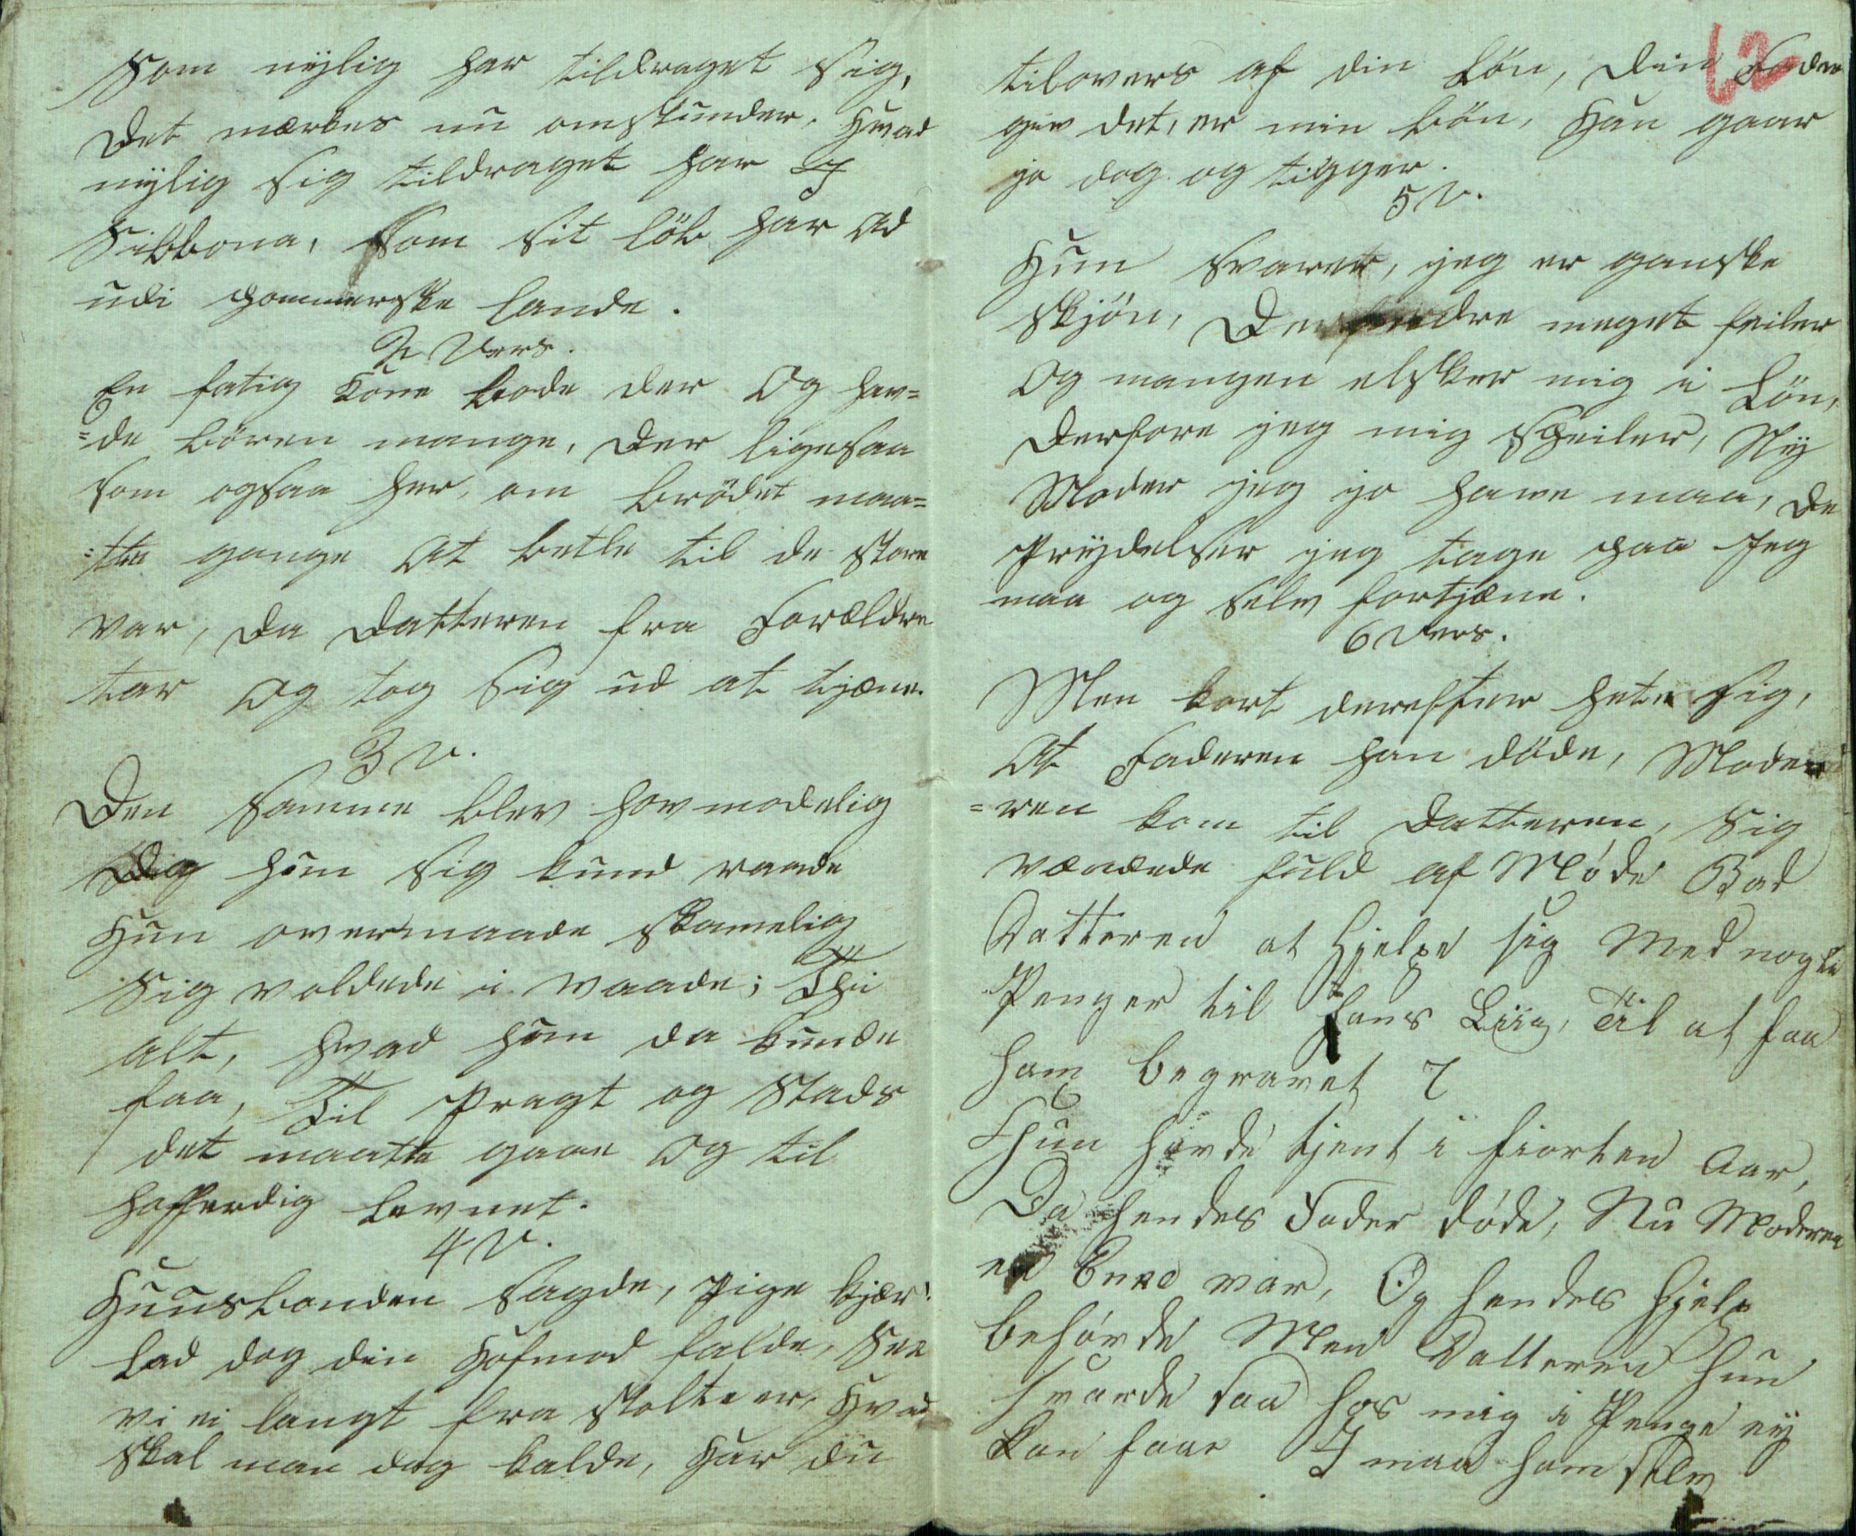 Som nÿlig har tildraget sig,
Det mærkes nu omstunder. Hvad
nÿlig sig tildraget har I
Sibbona, som sit løb har Ad
udi pommerske lande.
2 Vers.
En fatig Kone bode der Og hav=
=de börn mange, Der ligesaa
som ogsaa her, om brödet maa=
=tte gange At betle til de store
var, da Datteren fra Forældre
tar Og tog Sig ud at tjene.
3 V.
Den samme blev hovmodelig
Og hun sig kund raade
Hun overmaade skamelig
Sig voldede i vaade; Thi
alt, hvad hun da kunde
faa, Til Pragt og Stads
det maatte gaae Og til
hofferdig levnet.
4 V.
Huusbonden sagde, Pige kjær
lad dog din Hofmod falde, See
vi ei langt fra stolte er, Hvad
skal man dog kalde, Har du
62
tilovers af din Lön, Din Fader
giv det, er min bön, Han gaar
jo dog og tigger.
5 V.
Hun svaret, jeg er ganske
skjön, De andre meget feiler
Og mangen elsker mig i Lön,
Derfore jeg mig speiler, Nÿ
Moder jeg jo have maa, De
Prÿdelser jeg tage paa Jeg
maa og selv fortjæne.
6 Vers.
Men kort derefter hete sig,
At Faderen han döde, Moder
=ren kom til Datteren, Sig
vændede fuld af Møde Bad
Datteren at Hjelpe sig Med nogle
Penger til hans Liig, Til at faa
ham begravet 7
Hun havde tjent i fiorten Aar,
Da hendes Fader døde, Nu Moderen
en Enke var, Og hendes Hjelp
behövde Men Datteren hun
svarde saa hos mig i Penge eÿ
kan faae I maa ham selv